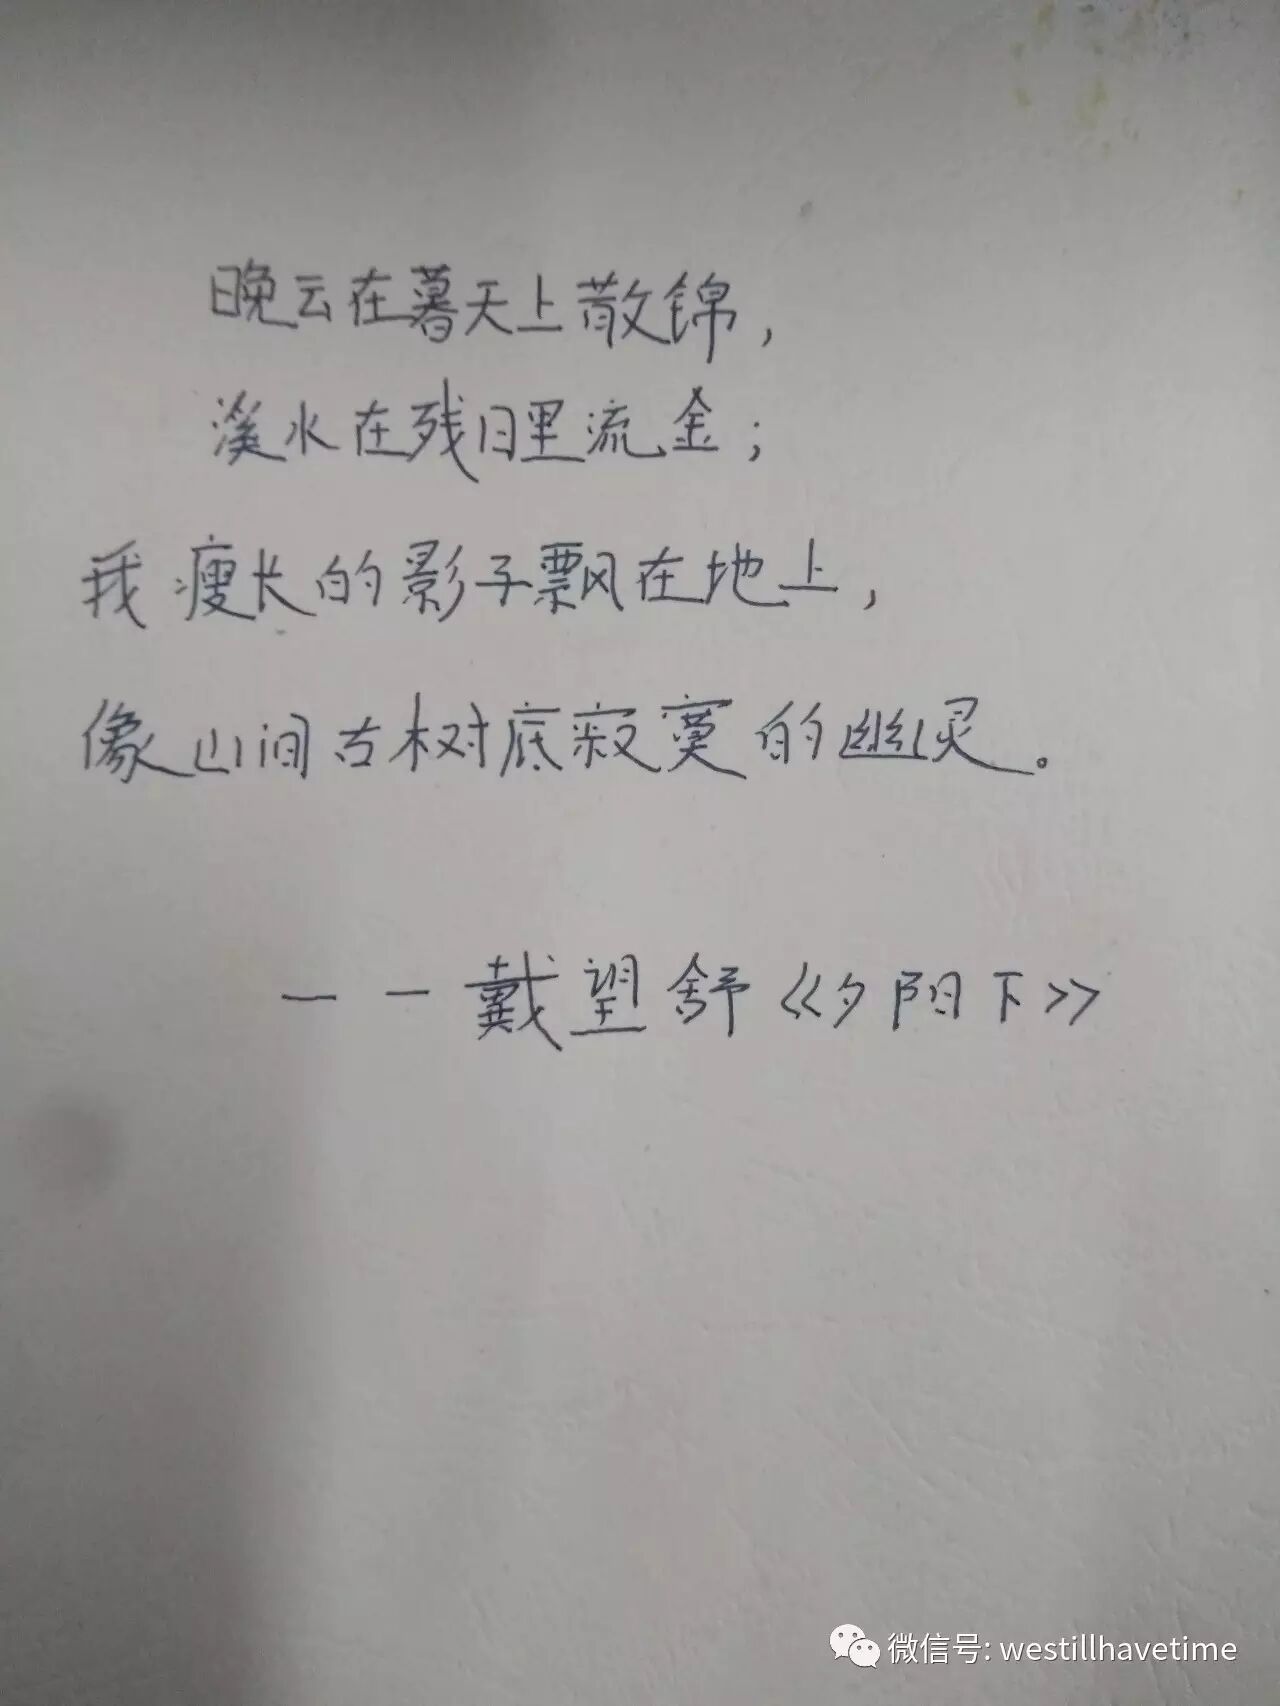 晚云在暮天上散锦，
溪水在残日里流金；
我瘦长的影子飘在地上，
像山间古树底寂寞的幽灵。
——戴望舒《夕阳下》
微信号: westillhavetime